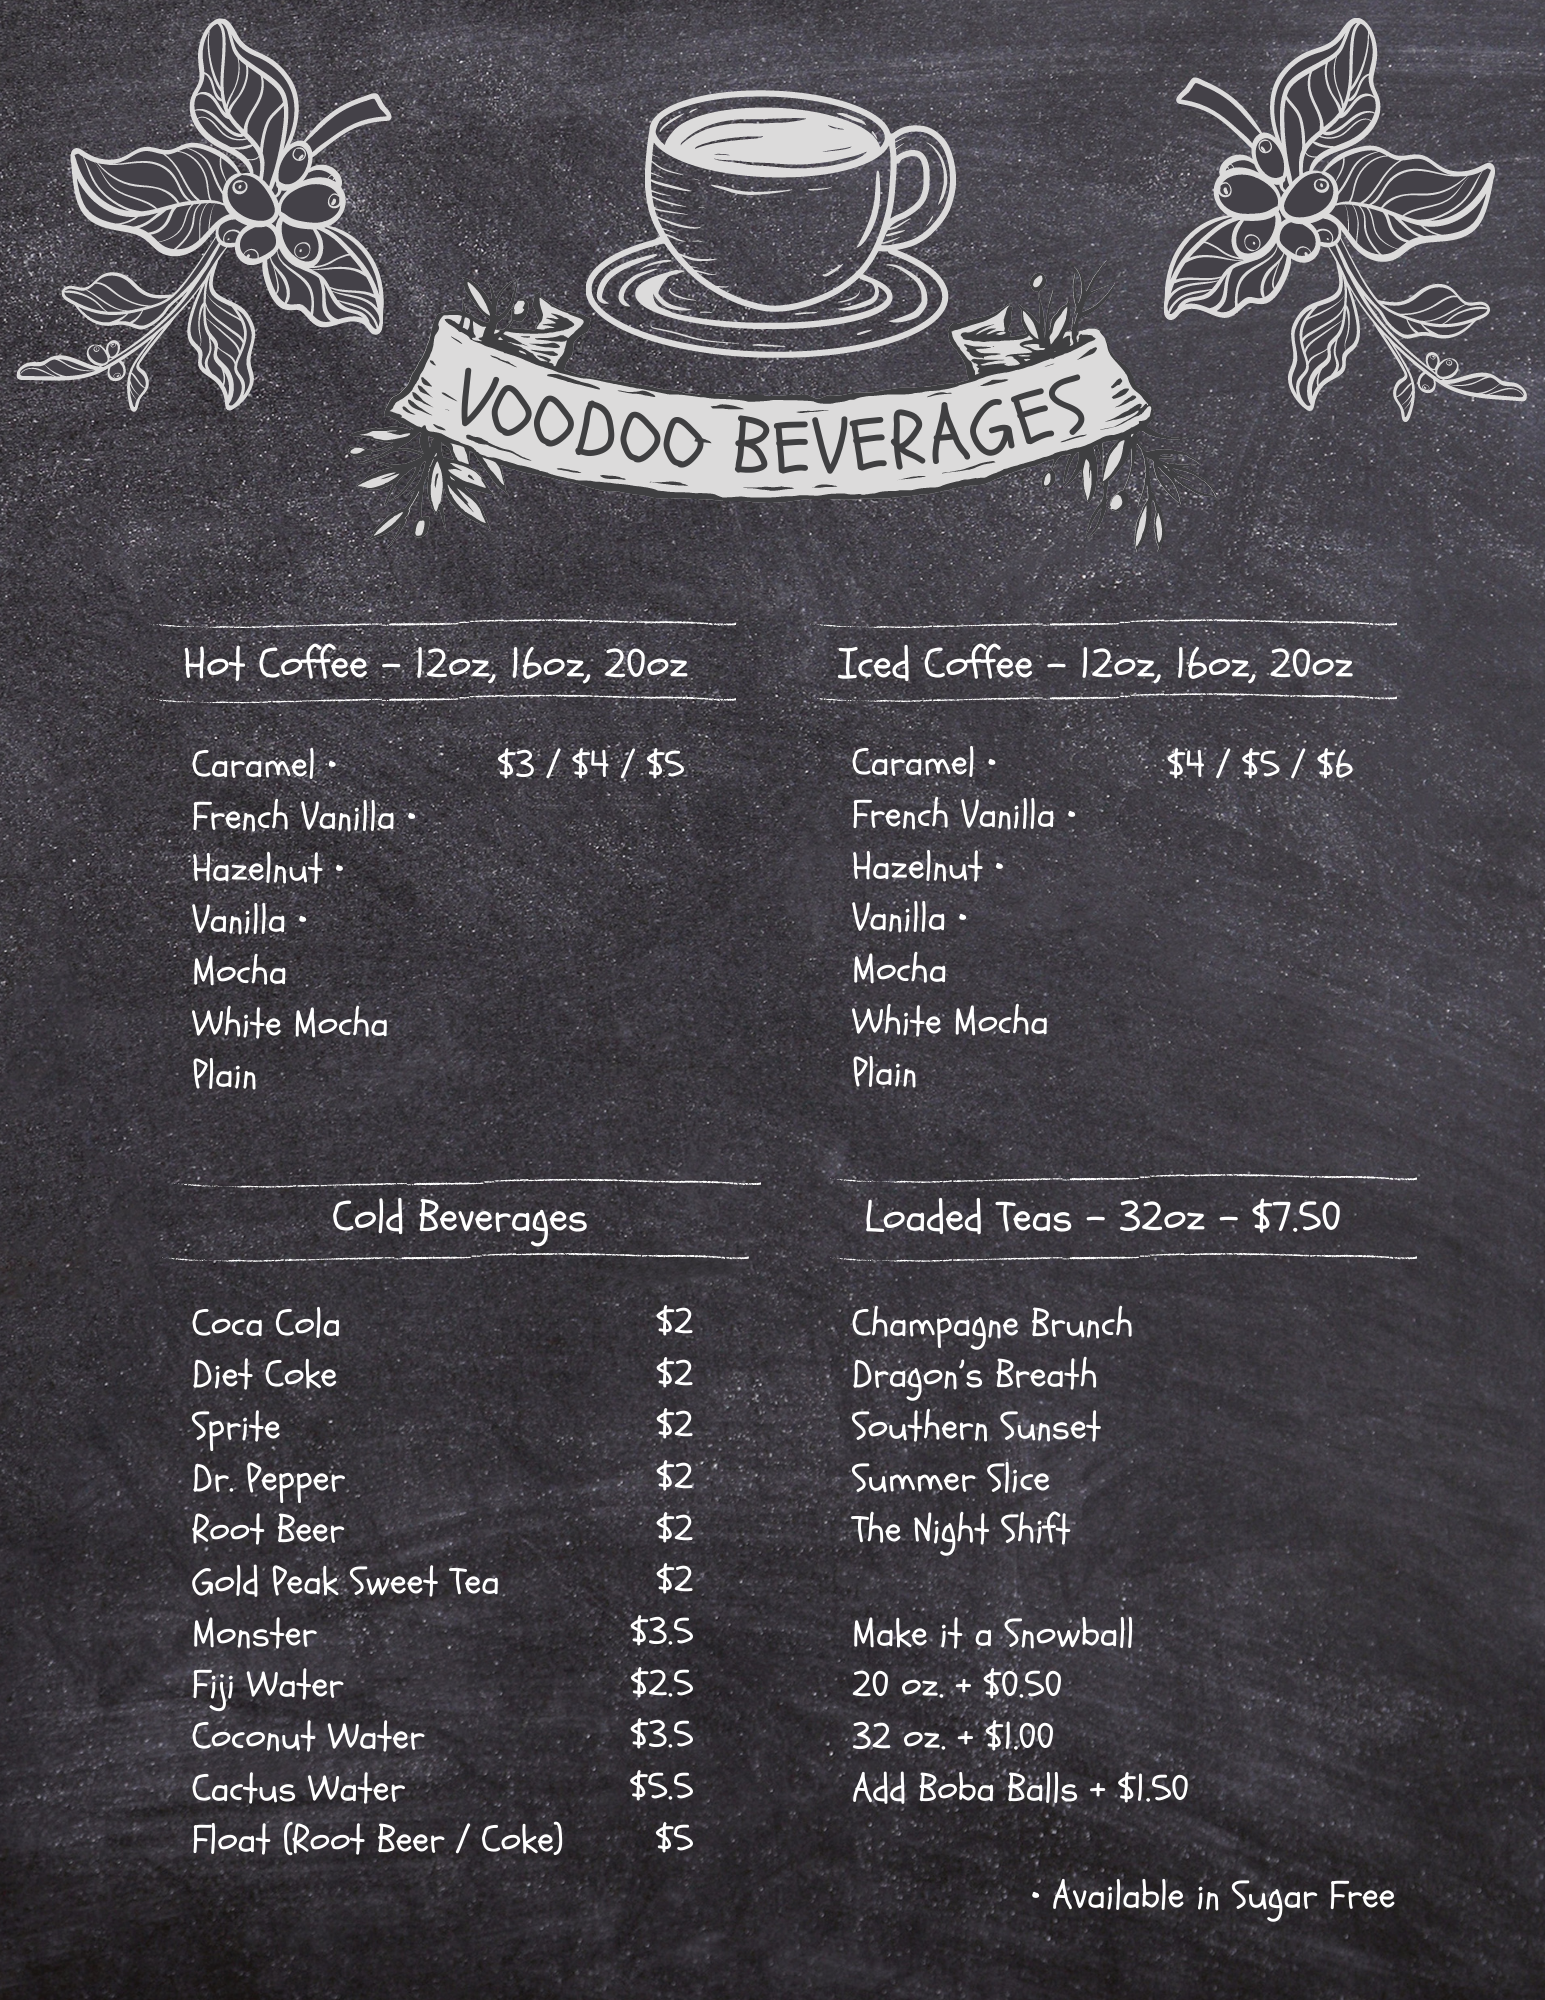 VOODOO BEVERAGES
Hot Coffee – 12oz, 16oz, 20oz
Caramel • $3 / $4 / $5
French Vanilla •
Hazelnut •
Vanilla •
Mocha
White Mocha
Plain
Iced Coffee – 12oz, 16oz, 20oz
Caramel • $4 / $5 / $6
French Vanilla •
Hazelnut •
Vanilla •
Mocha
White Mocha
Plain
Cold Beverages
Coca Cola $2
Diet Coke $2
Sprite $2
Dr. Pepper $2
Root Beer $2
Gold Peak Sweet Tea $2
Monster $3.5
Fiji Water $2.5
Coconut Water $3.5
Cactus Water $5.5
Float (Root Beer / Coke) $5
Loaded Teas – 32oz – $7.50
Champagne Brunch
Dragon's Breath
Southern Sunset
Summer Slice
The Night Shift
Make it a Snowball
20 oz. + $0.50
32 oz. + $1.00
Add Boba Balls + $1.50
• Available in Sugar Free